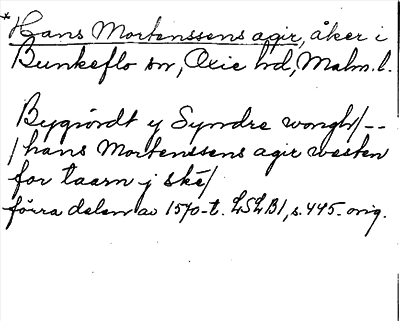 * Hans Mortenssens agir, åker i
Bunkeflo sn, Oxie hd, Malm. l.
Bygiördt y Syndre wongh/--
/hans Mortenssens agir westen
for taarn j skē/
förra delen av 1570-t. LSLB1, s. 445. orig.